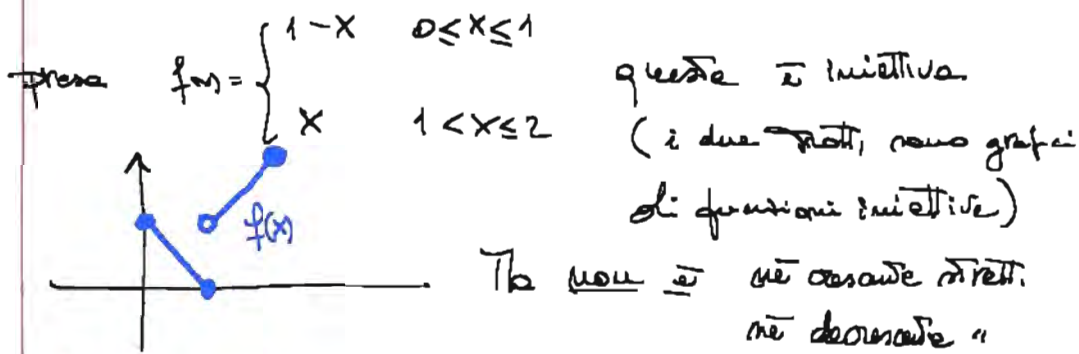 presa f(x) = { 1-x 0≤x≤1
x 1<x≤2
questa è iniettiva
(i due tratti sono grafici
di funzioni iniettive)
f(x)
Ma non è né crescente strett.
né decrescente "